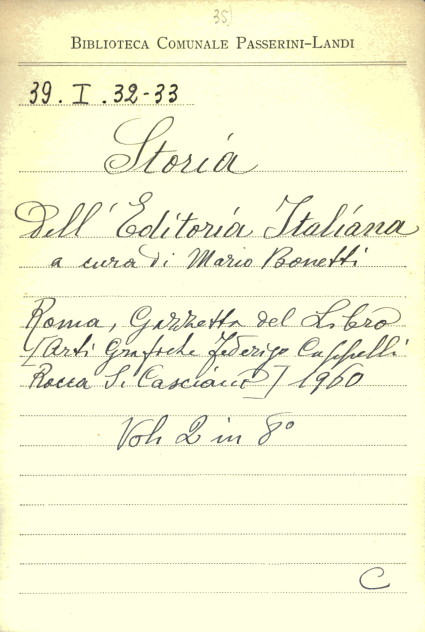 35
BIBLIOTECA COMUNALE PASSERINI-LANDI
39. I. 32-33
Storia
dell'Editoria Italiana
a cura di Mario Bonetti
Roma, Gazzetta del Libro
[Arti Grafiche Federigo Cappelli
Rocca S. Casciano] 1960
Vol. 2 in 8°
C